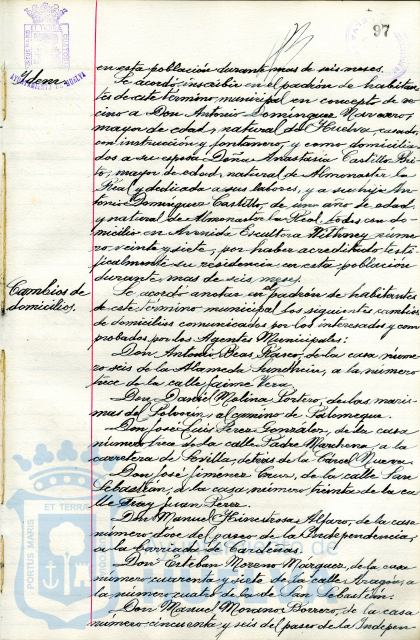 97
en esta población durante mas de seis meses.
Ydem.
Se acordó inscribir en el padrón de habitan-
tes de este término municipal en concepto de ve-
cino a Don Antonio Dominguez Navarro,
mayor de edad, natural de Huelva, casado
con instrucción y fontanero, y como domicilia-
dos a su esposa Doña Anastasia Castillo
mayor de edad, natural de Almonaster la
Real y dedicada a sus labores, y a su hijo An-
tonio Dominguez Castillo, de uno año de edad
y natural de Almonaster la Real, todos con do-
micilio en Avenida Escultora Withney núme-
ro veinte y siete, por haber acreditado testi-
ficalmente su residencia en esta población
durante mas de seis meses.
Cambios de
domicilios.
Se acordó anotar en el padrón de habitantes
de este término municipal los siguientes cambios
de domicilios comunicados por los interesados y com-
probados por los Agentes Municipales:
Don Antonio Beas de la casa núme-
ro seis de la Alameda Sundheim, a la número
trece de la calle Jaime Vera.
Don Daniel Molina Portero, de las maris-
mas del Polvorín, a camino de Palomeque.
Don José Luis Perez Gonzalez, de la casa
número trece de la calle Padre Marchena, a la
carretera de Sevilla, detrás de la Cárcel Nueva.
Don José Jiménez Cruz, de la calle San
Sebastián, a la casa número treinta de la ca-
lle Fray Juan Perez.
Don Manuel Hinestrosa Alfaro, de la casa
número dos del paseo de la Independencia,
a la Barriada de Cardeñas.
Don Esteban Moreno Marquez, de la casa
número cuarenta y siete de la calle Aragón, a
la número cuatro de la de San Sebastián.
Don Manuel Moreno Borrero, de la casa
número cincuenta y seis del paseo de la Indepen
PORTUS MARIS
ET TERRAE